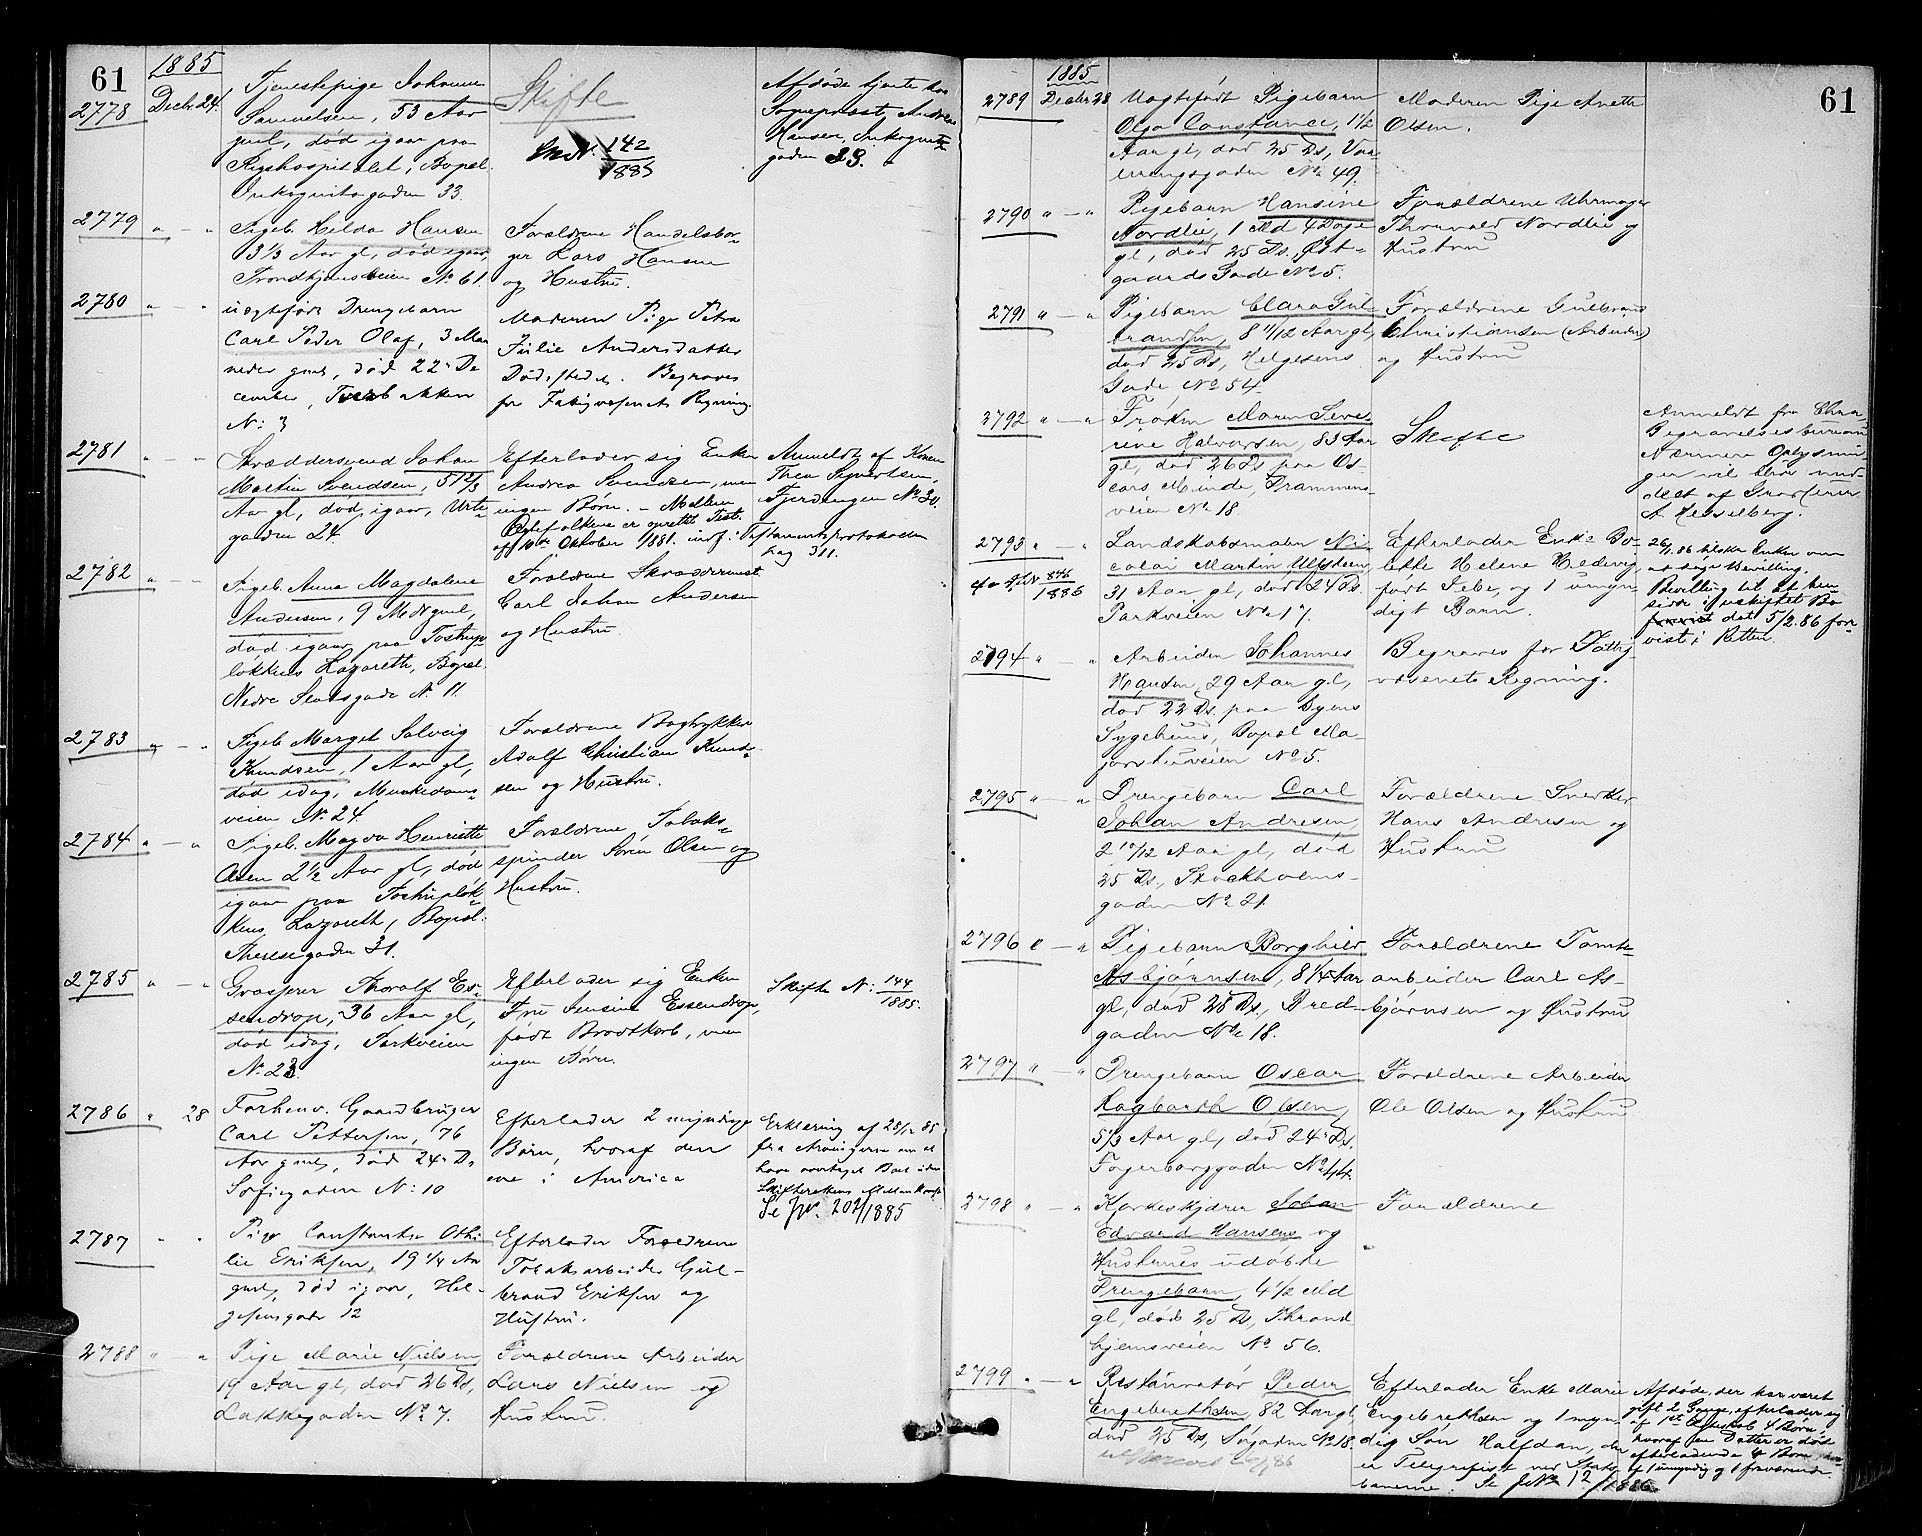 61
1885
2778 Decbr. 24.
Tjenestepige Johanne
Samuelsen, 53 Aar
gml, død igaar paa
Rigshospitalet, Bopæl
Inkognitogaden 33.
Skifte
142
1885
Afdøde tjente hos
Sogneprest Andreas
Hansen, Inkognito-
gaden 33.
2779 " — "
Pigeb. Hilda Hansen
3 1/3 Aar gl, død igaar,
Trondhjemsveien No 61.
Forældrene Handelsbor-
ger Lars Hansen
og Hustru.
2780 " — "
uægtefødt Drengebarn
Carl Peder Olaf, 3 Maa
neder gml, død 22de De
cember, Tverbakken
No: 3
Moderen Pige Petra
Julie Andersdatter
Dødsstedet. Begraves
for Fattigvæsenets Regning.
2781 " — "
Skræddersvend Johan
Martin Svendsen, 51 2/3
Aar gl, død igaar, Urte-
gaden 24.
Efterlader sig Enken
Andrea Svendsen, men
ingen Børn. — Mellem
Ægtefolkene er oprettet Test.
af 10de Oktober 1881. indf. i Testamentsprotokollen
Pag 311.
Anmeldt af Konen
Thea Syvertsen,
Fjerdingen No 30.
2782 " — "
Pigeb. Anna Magdalene
Andersen, 9 Mdr gml,
død igaar paa Tostrup-
løkkens Lazareth, Bopæl
Nedre Slotsgade No 11.
Forældrene Skræddermest.
Carl Johan Andersen
og Hustru.
2783 " — "
Pigeb. Marget Solveig
Knudsen, 1 Aar gl,
død idag, Munkedams-
veien No 24.
Forældrene Bogtrykker
Adolf Christian Knud-
sen og Hustru.
2784 " — "
Pigeb. Magda Henriette
Olsen 2 1/2 Aar gl, død
igaar paa Tostrupløk-
kens Lazareth, Bopæl
Theresegaden 31.
Forældrene Tobaks-
spinder Søren Olsen og
Hustru.
2785 " — "
Grosserer Thorolf Es-
sendrop, 36 Aar gl,
død idag, Parkveien
No 23.
Efterlader sig Enken
Fru Jensine Essendrop,
født Brodtkorb, men
ingen Børn.
Skifte No: 144
1885.
2786 " 28
Forhenv. Gaardbruger
Carl Pettersen, 76
Aar gml, død 24de Ds
Sofiegaden No: 10
Efterlader 2 myndige
Børn, hvoraf den
ene i America
Erklæring af 28/12 85
fra Arvingerne om at
have overtaget Boet uden
Skifterettens
Se JN. 202/1885
2787 " "
Pige Constantse Othi
lie Eriksen, 19 1/4 Aar
gml, død igaar, Hel-
gesensgade 12
Efterlader Forældrene
Tobaksarbeider Gul-
brand Eriksen og
Hustru.
2788 " "
Pige Marie Nielsen
19 Aar gl, død 26 Ds,
Lakkegaden No 7.
Forældrene Arbeider
Lars Nielsen og
Hustru.
61
1885
2789 Decbr 28
Uægtefødt Pigebarn
Olga Constance, 1 1/2
Aar gl, død 25 Ds, Vaa
lerengsgaden No 49.
Moderen Pige Anette
Olsen.
2790 " — "
Pigebarn Hansine
Nordlie, 1 Md 4 Dage
gl, død 25 Ds, Øst-
gaards Gade No 5.
Forældrene Uhrmager
Thorvald Nordlie og
Hustru
2791 " — "
Pigebarn Clara Gul
brandsen, 8 11/12 Aar gl,
død 25 Ds, Helgesens
Gade No 54.
Forældrene Gulbrand
Christiansen (Arbeider)
og Hustru
2792 " — "
Frøken Maren Seve
rine Halvorsen, 83 Aar
gl, død 26 Ds paa Os-
cars Minde, Drammens-
veien No 18.
Skifte
Anmeldt fra Chra
Begravelsesbureau
Nærmere Oplysnin-
ger vil blive med-
delt af Grosserer
A. Hesselberg.
2793 " — "
1886
Landskabsmaler Ni
colai Martin Ulfsten,
31 Aar gl, død 24 Ds.
Parkveien No 17.
Efterlader Enke Bo-
lette Helene Hedevig,
født Sebe, og 1 umyn-
digt Barn.
26/1.86 tilskr. Enken om
at søge Bevilling.
Bevilling til at hen
sidde i uskiftet Bo
dat 5/2.86 fore
vist i Retten.
2794 " — "
Arbeider Johannes
Hansen, 29 Aar gl,
død 22 Ds. paa Byens
Sygehuus, Bopæl Ma-
jorstuveien No 5.
Begraves for Fattig-
væsenets Regning.
2795 " — "
Drengebarn Carl
Johan Andresen,
2 10/12 Aar gl, død
25 Ds, Stockholms-
gaden No 21.
Forældrene Snedker
Hans Andresen og
Hustru
2796 " — "
Pigebarn Borghild
Asbjørnsen, 8 1/4 Aar
gl, død 28 Ds, Bred-
gaden No 18.
Forældrene Tomte-
arbeider Carl As-
bjørnsen og Hustru
2797 " — "
Drengebarn Oscar
Hagbarth Olsen,
5 1/3 Aar gl, død 24de Ds.
Fagerborggaden No 44.
Forældrene Arbeider
Ole Olsen og Hustru.
2798 " — "
Karveskjærer Johan
Edvard Hansens og
Hustrues udøbte
Drengebarn, 4 1/2 Md
gl, død 25 Ds, Thrond
hjemsveien No 56.
Forældrene
2799 " — "
Restauratør Peder
Engebrethsen 82 Aar gl,
død 25 Ds, Søgaden No 18.
Efterlader Enke Marie
Engebrethsen og 1 myn-
dig Søn Halfdan, der
er Telegrafist ved Stats
banerne. Se JNo 12/1886.
Afdøde, der har været
gift 2 Gange, efterlader sig
af 1ste Ægteskab 4 Børn,
hvoraf en Datter er død
efterladende 4 Børn, hvor
af 1 umyndig og 1 fraværende